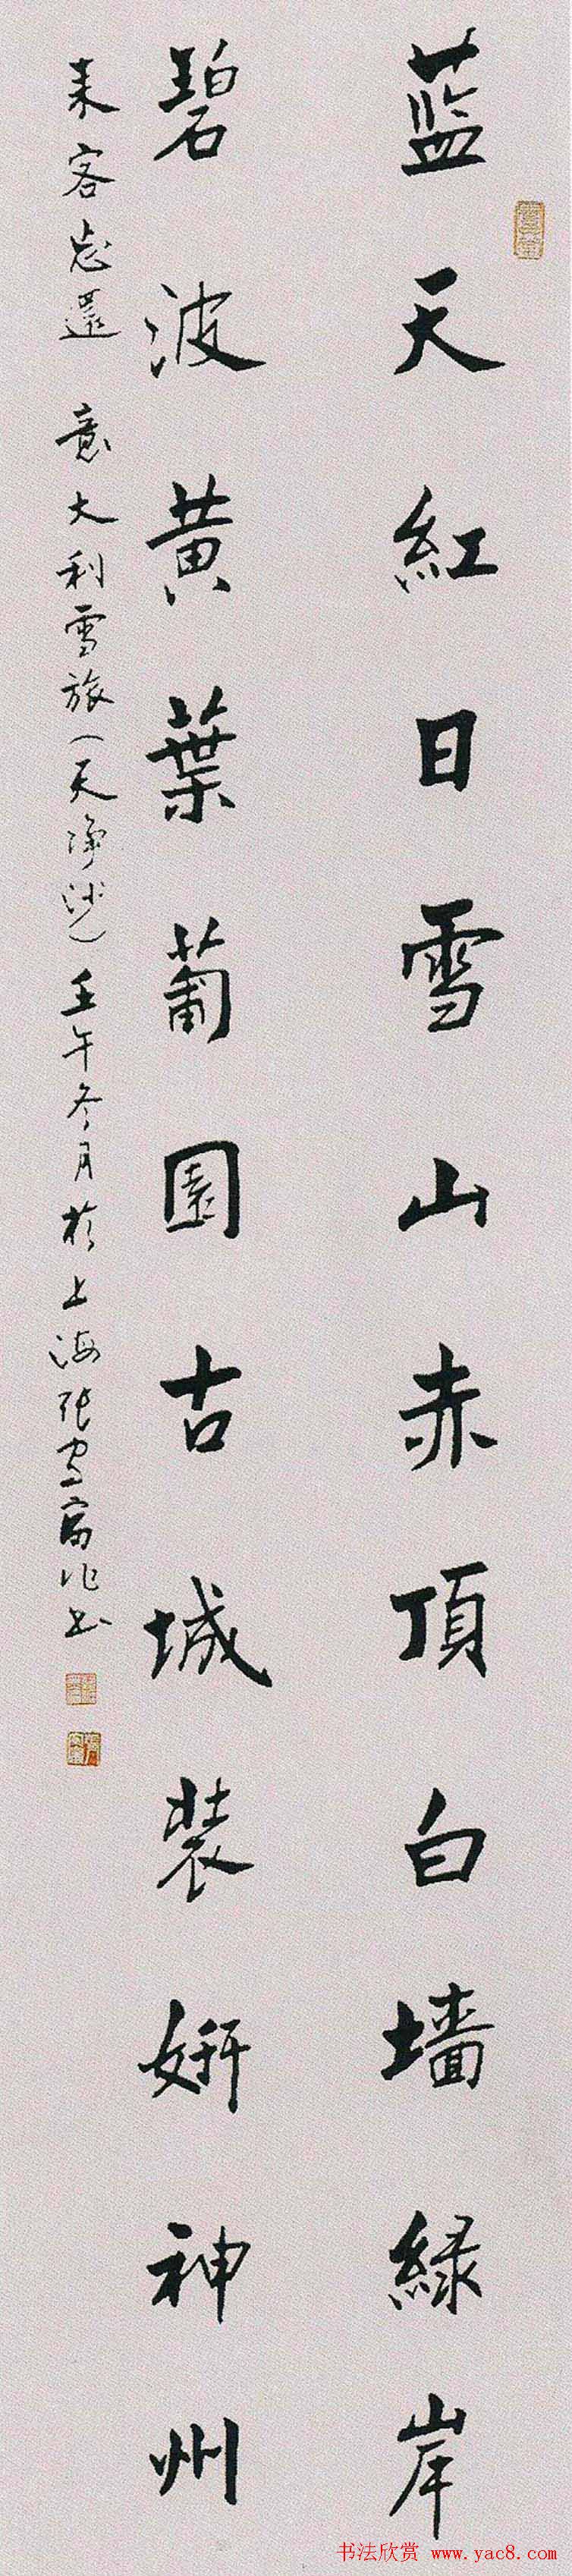 蓝天紅日雪山赤頂白墙緑岸
碧波黄葉葡園古城装妍神州
来客忘還 意大利雪旅(天净沙)壬午冬月於上海張
作书
书法欣赏 www.yac8.com